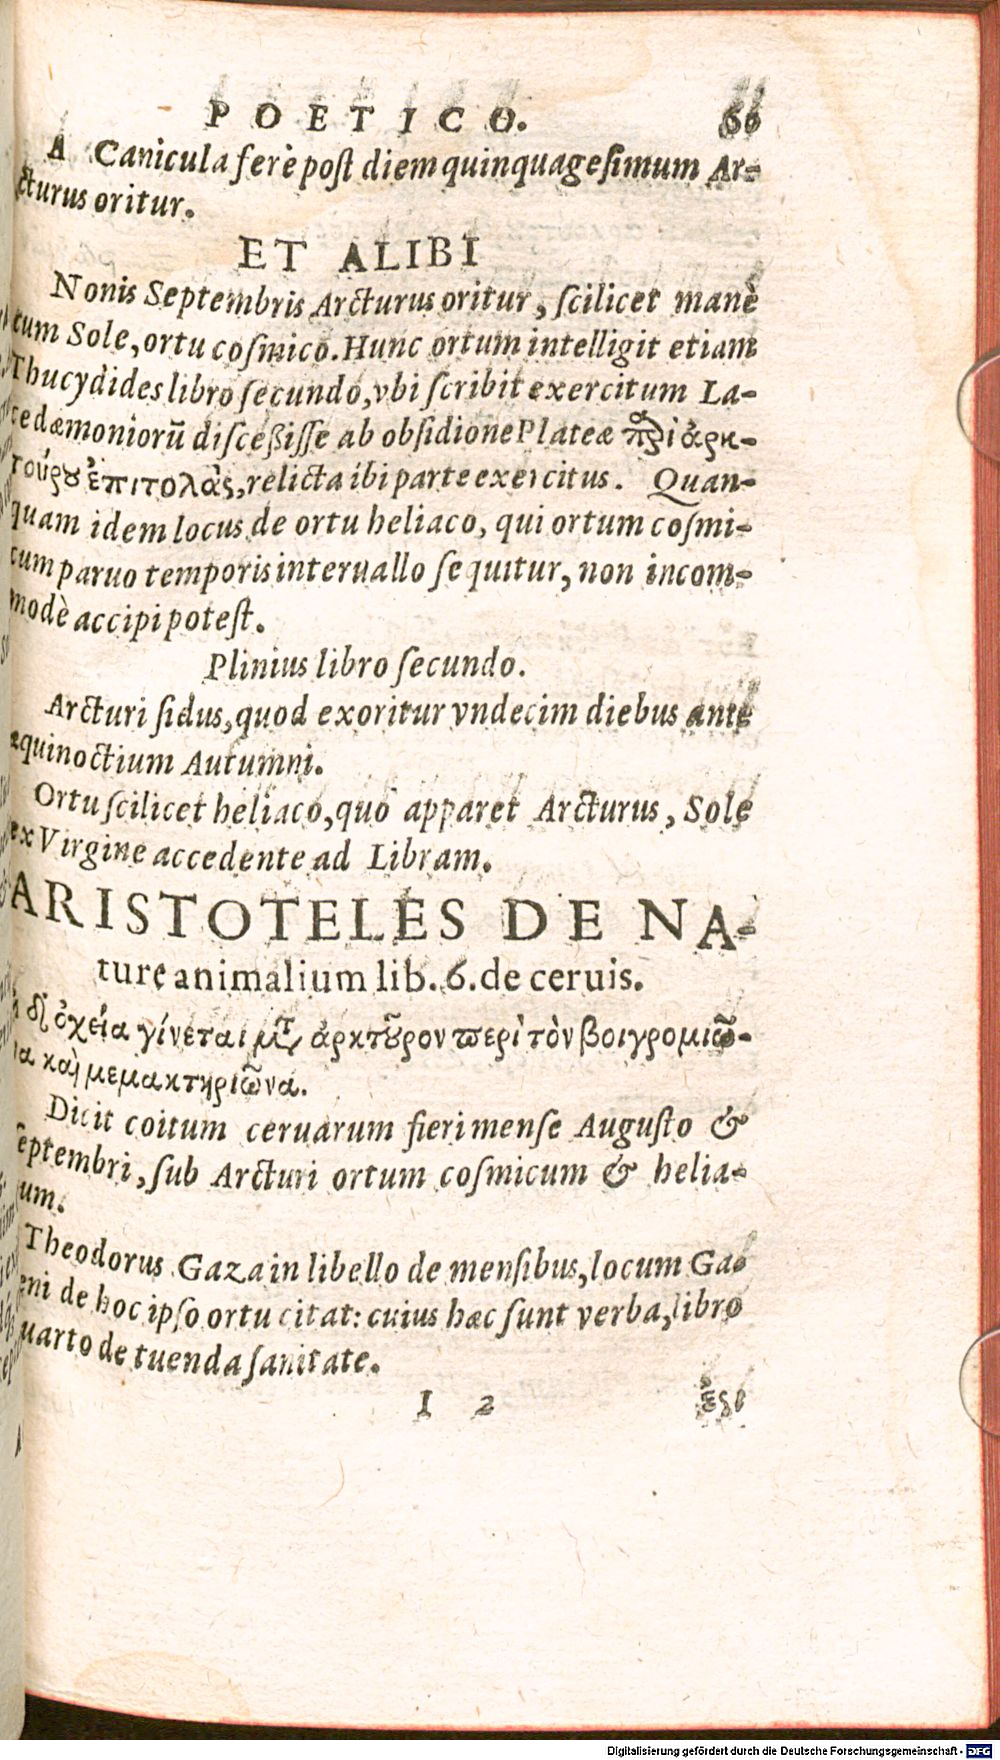 POETICO. 66
A Canicula ferè post diem quinquagesimum Ar-
cturus oritur.
ET ALIBI
Nonis Septembris Arcturus oritur, scilicet manè
cum Sole, ortu cosmico. Hunc ortum intelligit etiam
Thucydides libro secundo, vbi scribit exercitum La-
cedæmoniorũ discessisse ab obsidione Plateæ περὶ ἀρκ-
τούρου ἐπιτολὰς, relicta ibi parte exercitus. Quan-
quam idem locus de ortu heliaco, qui ortum cosmi-
cum paruo temporis interuallo sequitur, non incom-
modè accipi potest.
Plinius libro secundo.
Arcturi sidus, quod exoritur vndecim diebus ante
æquinoctium Autumni.
Ortu scilicet heliaco, quo apparet Arcturus, Sole
ex Virgine accedente ad Libram.
ARISTOTELES DE NA-
turę animalium lib. 6. de ceruis.
δὲ ὀχεία γίνεται μετ' ἀρκτοῦρον περὶ τὸν βοιγρομιῶ-
να καὶ μεμακτηριῶνα.
Dicit coitum ceruarum fieri mense Augusto &
Septembri, sub Arcturi ortum cosmicum & helia-
cum.
Theodorus Gaza in libello de mensibus, locum Ga-
leni de hoc ipso ortu citat: cuius hæc sunt verba, libro
quarto de tuenda sanitate.
I 2
Digitalisierung gefördert durch die Deutsche Forschungsgemeinschaft - DFG